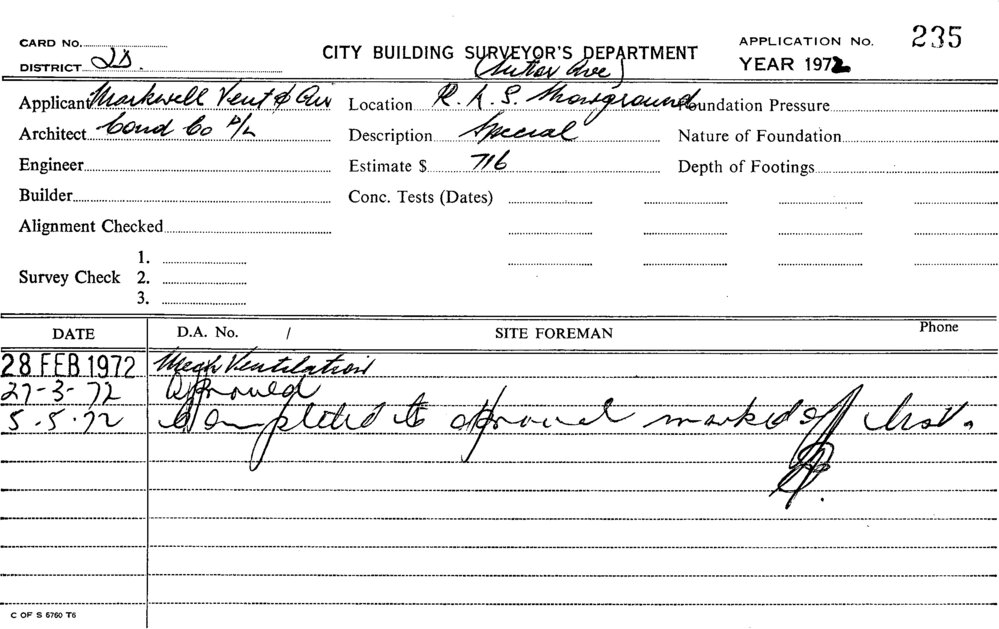 CARD NO. CITY BUILDING SURVEYOR'S DEPARTMENT APPLICATION No. 235
DISTRICT 2D. (Suttor Ave) YEAR 1972
Applicant Markwell Vent & Air Location R.A.S. Showground Foundation Pressure
Architect Cond Co P/L Description Special Nature of Foundation
Engineer Estimate $ 716 Depth of Footings
Builder Conc. Tests (Dates)
Alignment Checked
1.
Survey Check 2.
3.
DATE D.A. No. / SITE FOREMAN Phone
28 FEB 1972 Mech Ventilation
27-3-72 Approved
5.5.72 Completed to approval marked off
C OF S 5760 T6